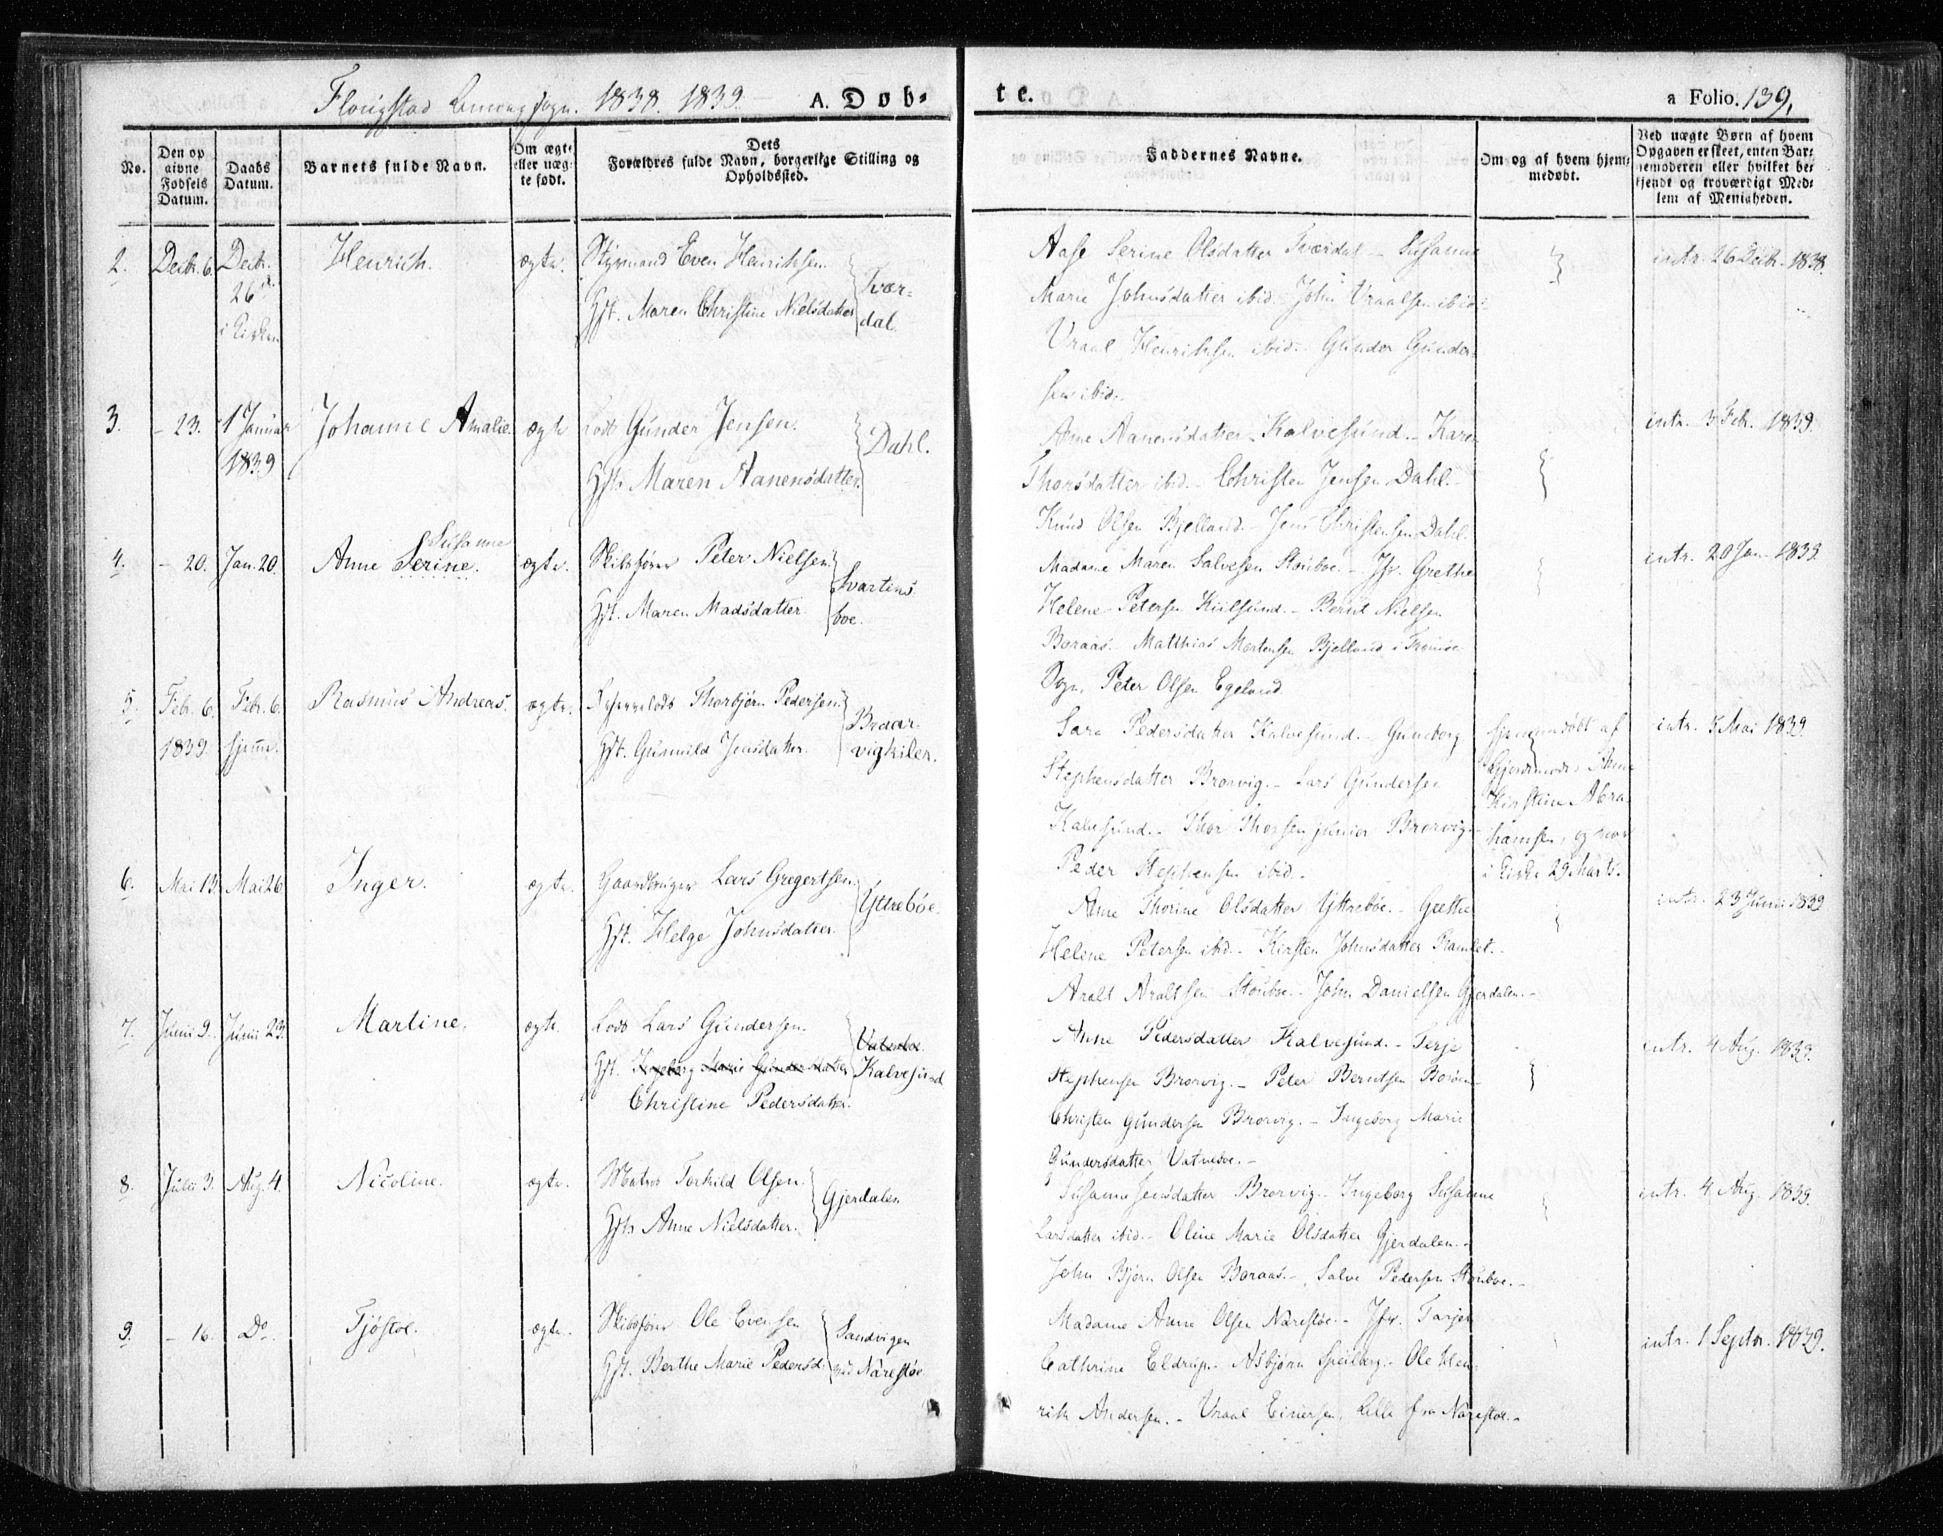 Flougstad Annexsogn. 1838. 1839. A. Døb-
te.
a Folio. 139.
No.
Den op
givne
Fødsels
Datum.
Daabs
Datum.
Barnets fulde Navn.
Om ægte
eller uæg-
te født.
Dets
Forældres fulde Navn, borgerlige Stilling og
Opholdssted.
Faddernes Navne.
Om og af hvem hjem-
medøbt.
Ved uægte Børn af hvem
Opgaven er skeet, enten Bar-
nemoderen eller hvilket be-
kjendt og troværdigt Med-
lem af Menigheden.
2. Decbr. 6. Decbr. Henrich. ægte. Styrmand Even Henrichsen
26de
i Kirken
Hst. Maren Christine Nielsdatter
Tvær-
dal.
Aase Serine Olsdatter Tværdal - Susanne
Marie Johnsdatter ibid. John Vraalsen ibid.
Vraal Henrichsen ibid. - Gunder Gunder-
sen ibid.
intr. 26 Decbr. 1838.
3. - 23. 1 Januar Johanne Amalie. ægte Lods Gunder Jensen.
1839
Hst. Maren Aanensdatter.
Dahl.
Anne Aanensdatter Kalvesund. - Karen
Thorsdatter ibid. - Christen Jensen Dahl. -
Knud Olsen Bjelland. - Jens Christensen Dahl.
intr. 3 Feb. 1839.
4. - 20. Jan. 20. Anne Serine. ægte. Skibsfører Peter Nielsen
Susanne
Hst. Maren Madsdatter
Svartens
boe.
Madame Maren Salvesen Stouboe. - Jfr. Grethe
Helene Petersen Kiilsund. - Bernt Nielsen
Boraas. - Matthias Mortensen Bjelland i Tromøe
Sogn. Peter Olsen Egeland.
intr. 20 Jan. 1839.
5. Febr. 6. Febr. 6. Rasmus Andreas. ægte. Thorbjørn Pedersen
1839. hjeme.
Hst. Gunnild Jensdatter.
Braar-
vigkilen.
Sara Pedersdatter Kalvesund. - Guneborg
Stephensdatter Brorvig. - Lars Gundersen
Kalvesund. - Thor Thorsen junior Brorvig. -
Peder Stephensen ibid. -
hjemmedøbt af
Gjordemoder Anne
Kirstine Abra-
hamsen, og var
i Kirke 29 Marts.
intr. 5 Mai 1839.
6. Mai 13. Mai 26 Inger. ægte. Gaardbruger Lars Gregertsen.
Hst. Helge Johnsdatter.
Yttrebøe.
Anne Thorine Olsdatter Yttrebøe. - Grethe
Helene Petersen ibid. - Kirsten Johnsdatter Ramlet. -
Aralt Araltsen Stouboe. - John Danielsen Gjerdalen. -
intr. 23 Juni 1839
7. Junii 9. Junii 23. Martine. ægte. Lods Lars Gundersen.
Hst. Ingeborg Marie Gundersdatter
Christine Pedersdatter.
Vatneboe.
Kalvesund
Anne Pedersdatter Kalvesund. - Terje
Stephensen Brorvig. - Peter Berntsen Boröen
Christen Gundersen Brorvig. - Ingeborg Marie
Gundersdatter Vatneboe. -
intr. 4 Aug. 1839.
8. Julii 3. Aug. 4. Nicoline. ægte. Matros Torkild Olsen.
Hst. Anne Nielsdatter.
Gjerdalen
Susanne Jensdatter Brorvig. - Ingeborg Susanne
Larsdatter ibid. - Oline Marie Olsdatter Gjerdalen. -
John Bjørn Olsen Boraas. - Salve Pedersen Stouboe. -
intr. 4 Aug. 1839.
9. - 16. Do. Tjøstol. ægte. Skibsfører Ole Evensen
Hst. Berthe Marie Pedersd.
Sandvigen
ved Narestøe
Madame Anne Olsen Narestøe. - Jfr. Tarjer
Cathrine Eldrup. - Asbjørn Speilberg. - Ole Hen-
rik Andersen. - Vraal Einersen, Lille fra Narestøe. -
intr. 1 Septr. 1839.